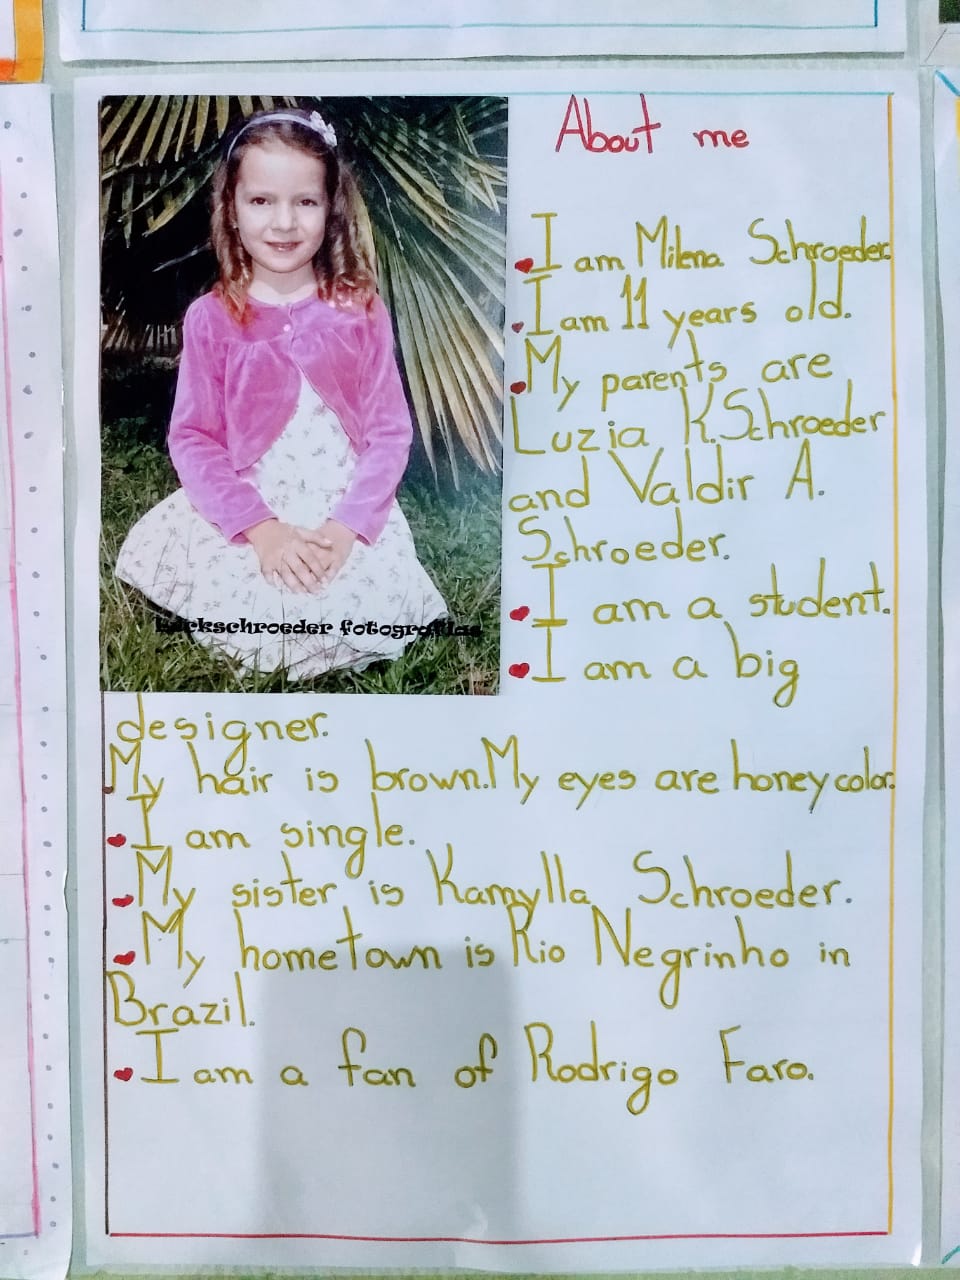 About me
I am Milena Schroeder.
I am 11 years old.
My parents are
Luzia K. Schroeder
and Valdir A.
Schroeder.
I am a student.
I am a big
designer.
My hair is brown. My eyes are honey color.
I am single.
My sister is Kamylla Schroeder.
My hometown is Rio Negrinho in
Brazil.
I am a fan of Rodrigo Faro.
fotografias